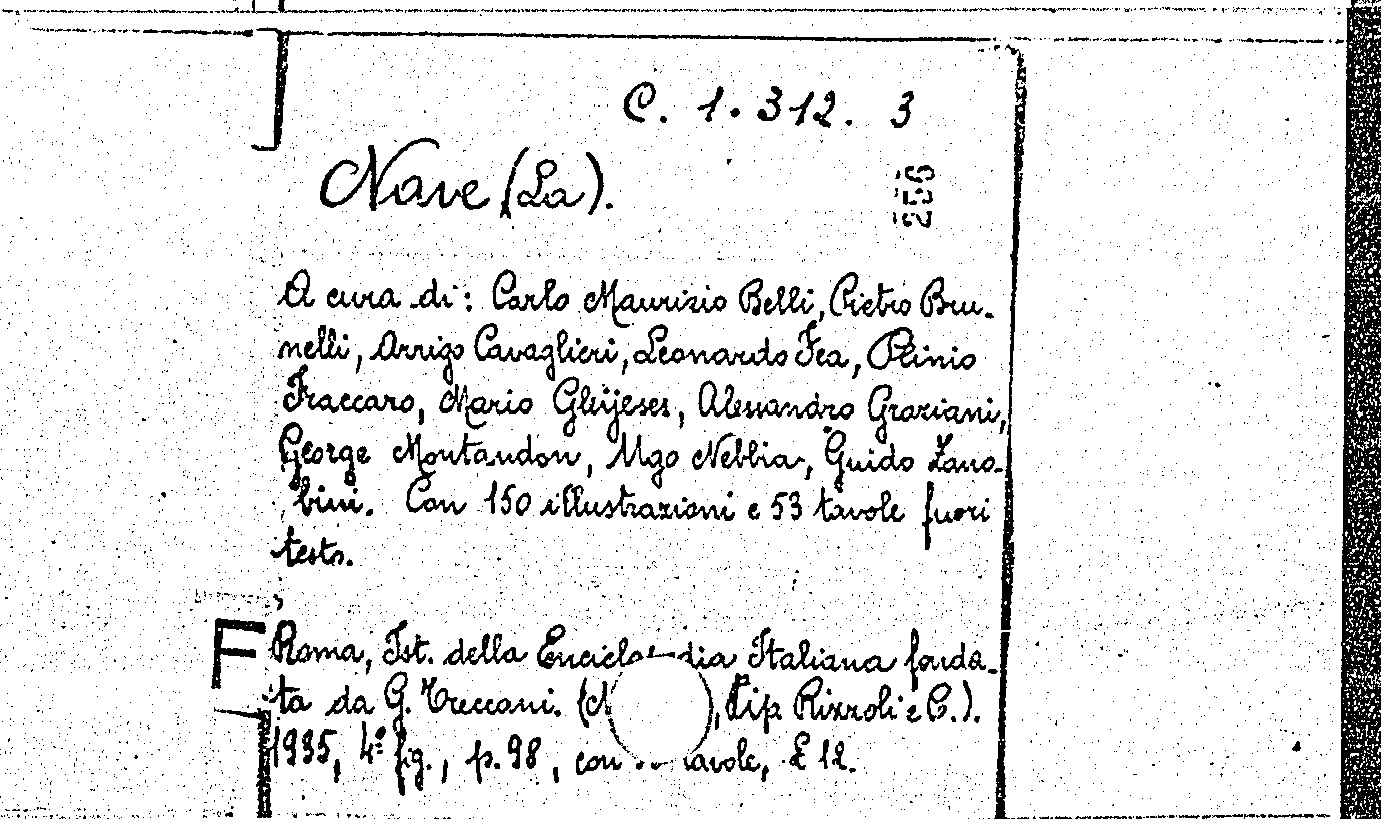 C. 1.312. 3
Nave (La).
256
A cura di: Carlo Maurizio Belli, Pietro Bru-
nelli, Arrigo Cavaglieri, Leonardo Fea, Plinio
Fraccaro, Mario Gleijeses, Alessandro Graziani,
George Montandon, Ugo Nebbia, Guido Zano-
bini. Con 150 illustrazioni e 53 tavole fuori
testo.
F
Roma, Ist. della Enciclo dia Italiana fonda-
ta da G. Treccani. ( , Tip. Rizzoli e C.).
1935, 4º fig., p. 98, con tavole, £ 12.